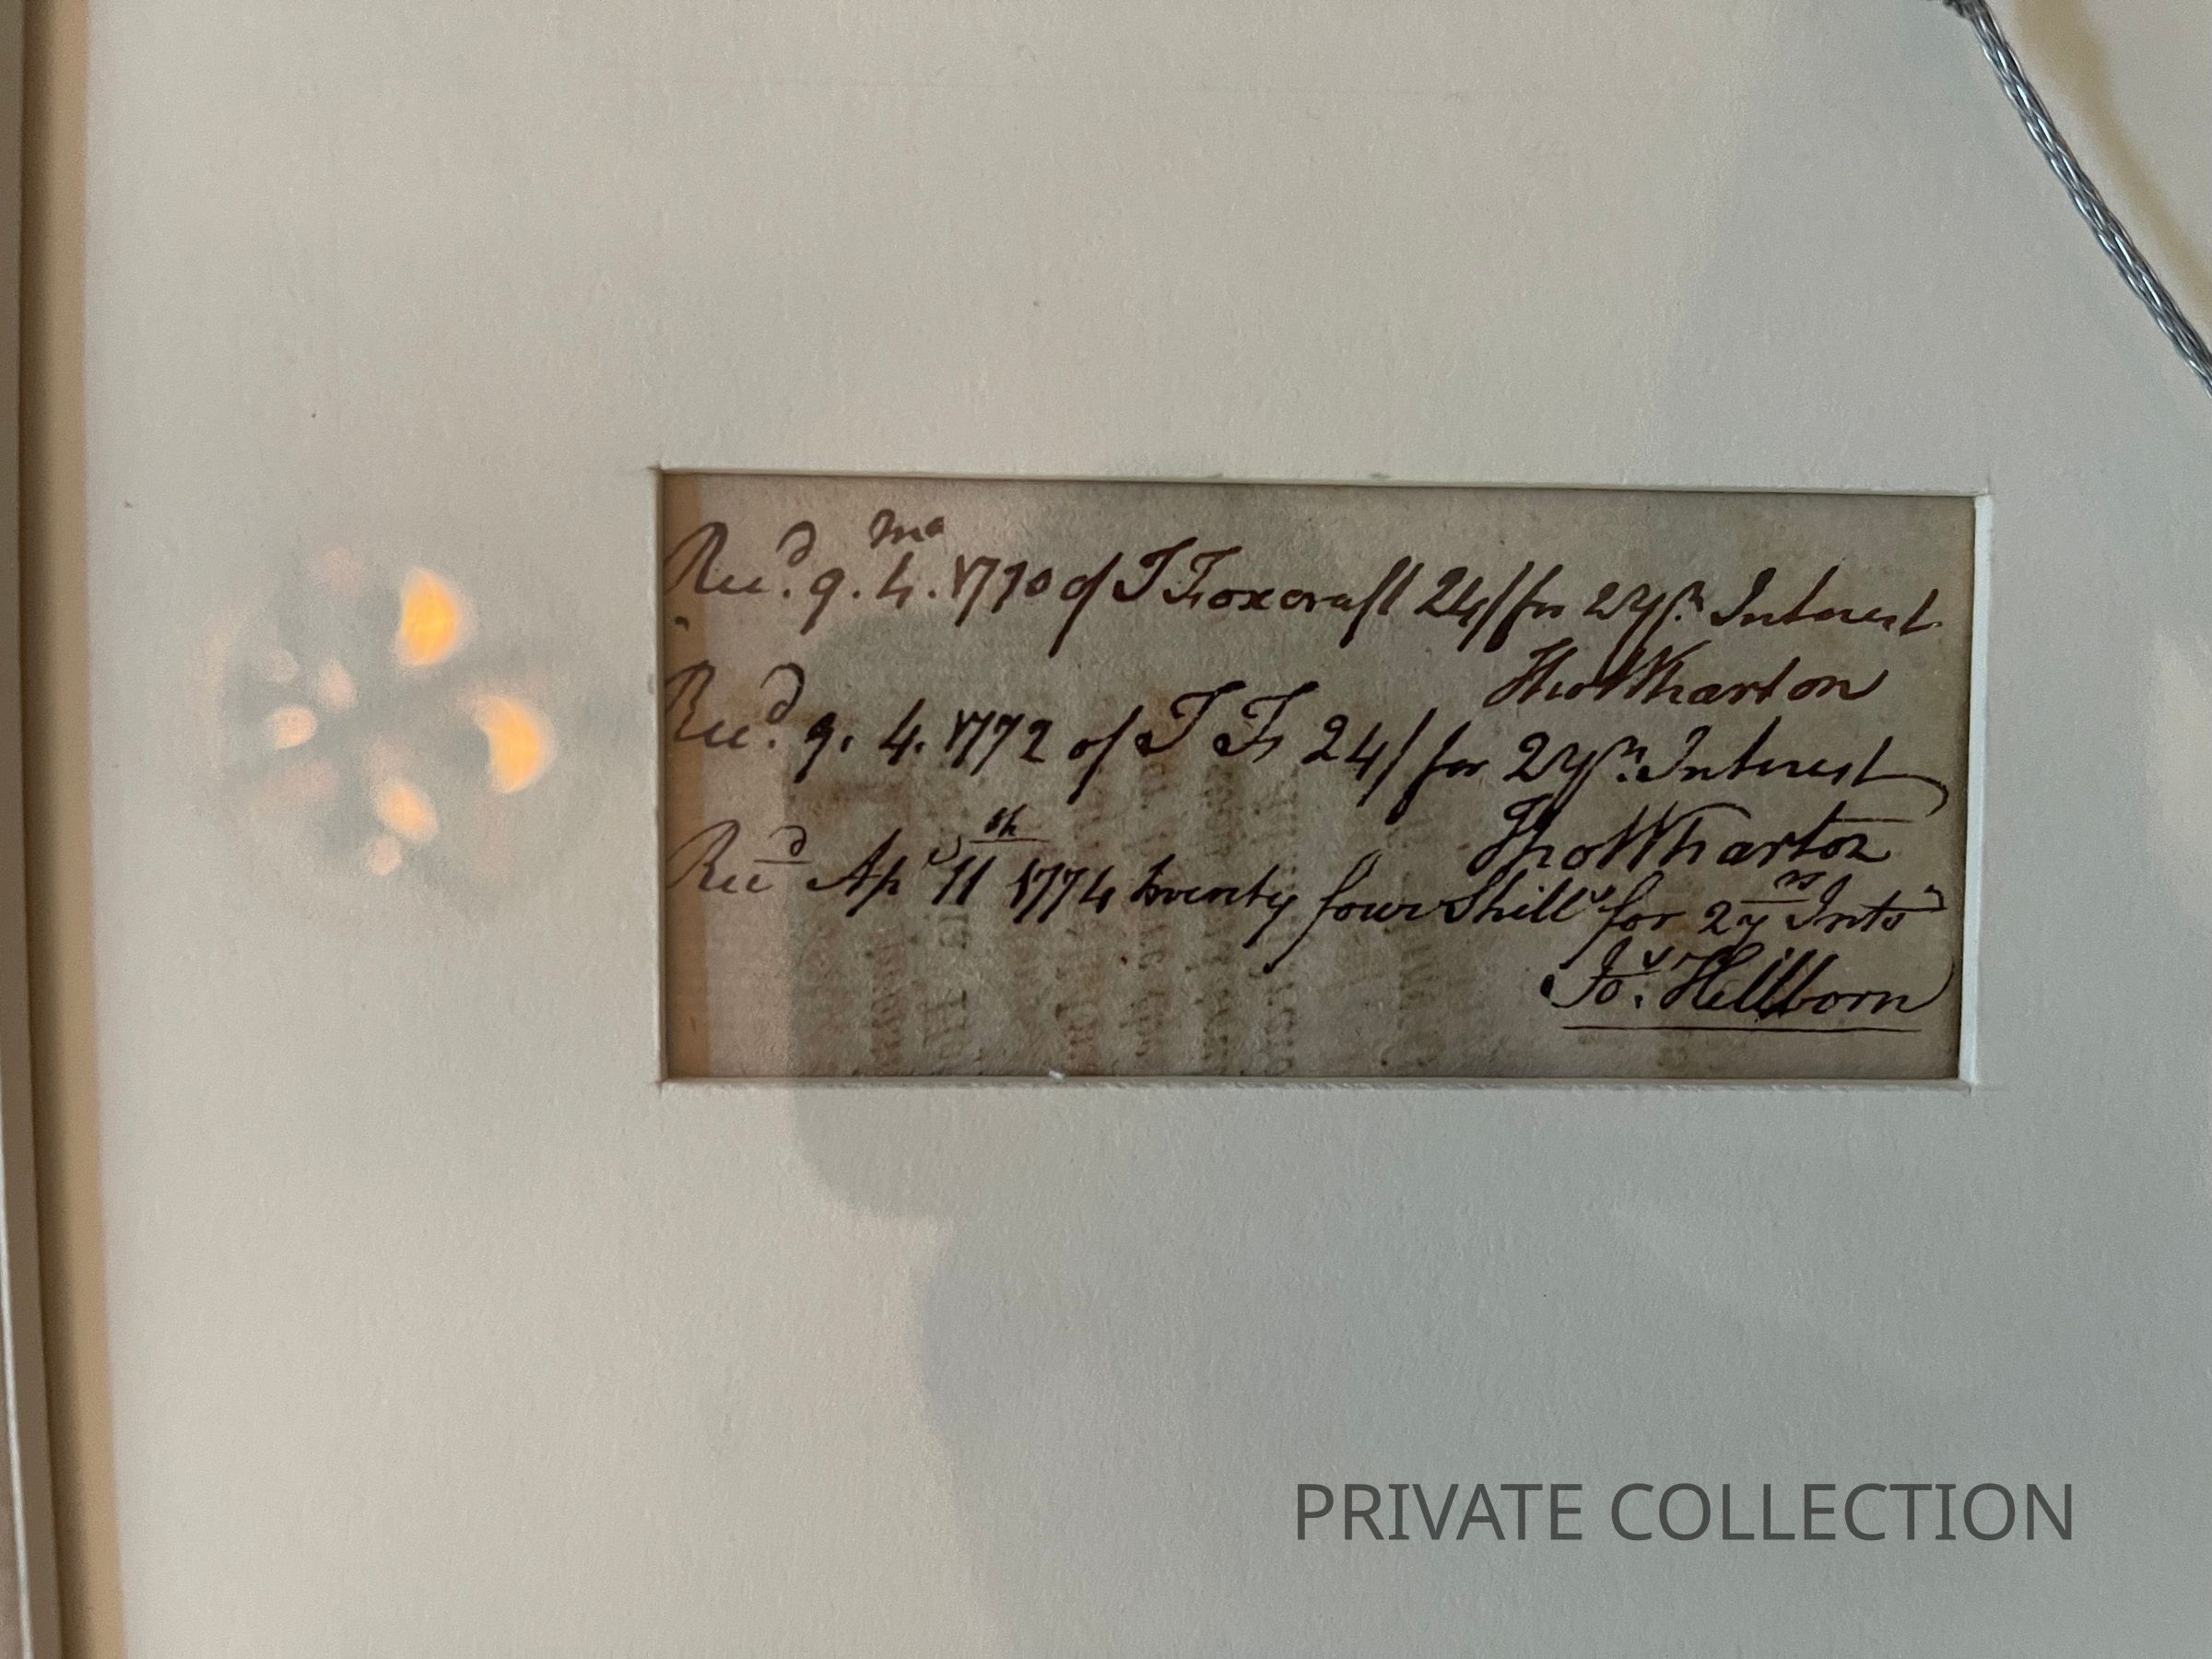 Recd. 9. 4.mo 1770 of T Foxcraft 24/ for 2 yrs. Interest
Tho Wharton
Recd. 9. 4. 1772 of T F 24/ for 2 yrs. Interest
Tho Wharton
Recd Apl 11th 1774 twenty four Shills for 2 yrs Intt
Jos. Hillborn
PRIVATE COLLECTION